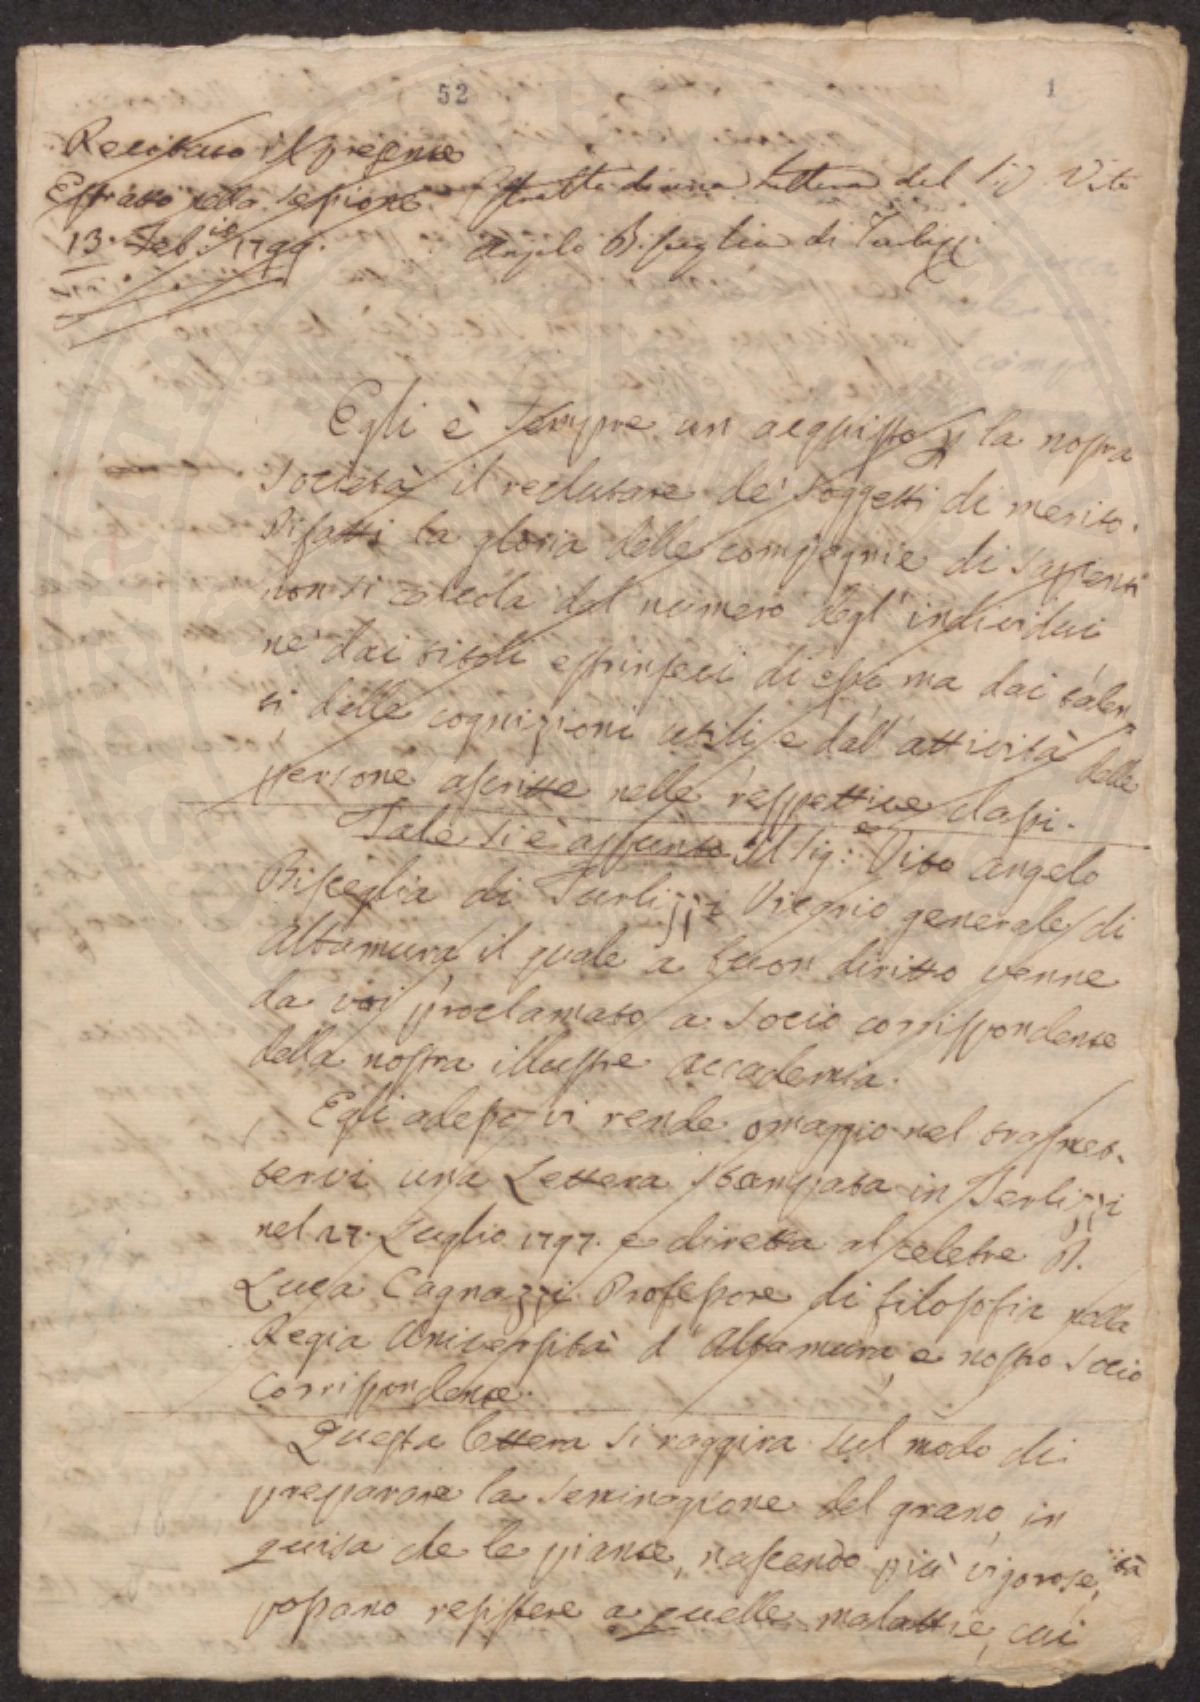 52
1
Recitato il presente
Estratto nella sessione
13. Feb. 1799.
Estratto di una Lettera del Sig. Vito
Angelo Bisceglia di Terlizzi
Egli è sempre un acquisto p la nostra
Società il reclutare de' soggetti di merito.
Difatti la gloria delle compagnie di Sapienti
non si calcola dal numero degl' individui
nè dai titoli estrinseci di essi, ma dai talen
ti, dalle cognizioni utili, e dall' attività delle
persone ascritte nelle respettive classi.
Tale si è appunto il Sig: Vito angelo
Bisceglia di Terlizzi Vicario generale di
Altamura, il quale a buon diritto venne
da voi proclamato a Socio corrispondente
della nostra illustre accademia.
Egli adesso vi rende omaggio nel trasmet-
tervi una Lettera stampata in Terlizzi
nel 27. Luglio 1797. e diretta al celebre D.
Luca Cagnazzi Professore di filosofia nella
Regia Università d' Altamura, e nostro Socio
Corrispondente.
Questa lettera si raggira sul modo di
preparare la seminagione del grano, in
guisa che le piante, nascendo più vigorose,
possano resistere a quelle malattie, cui